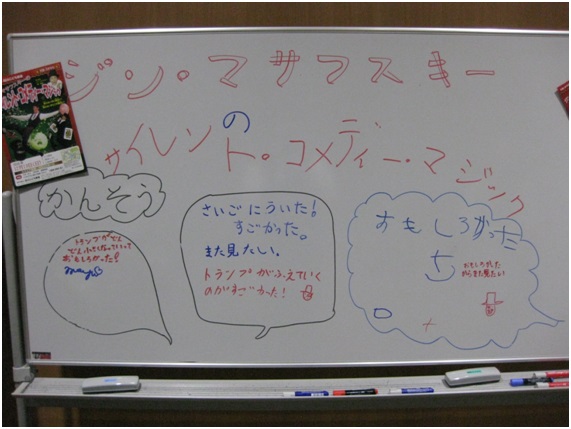 ジン・マサフスキー
の
サイレント・コメディー・マジック
かんそう
トランプがどん
どん小さくなっていって
おもしろかった!
さいごにういた!
すごかった。
また見たい。
トランプがふえていく
のがすごかった!
おもしろかった
おもしろかった
からまた見たい